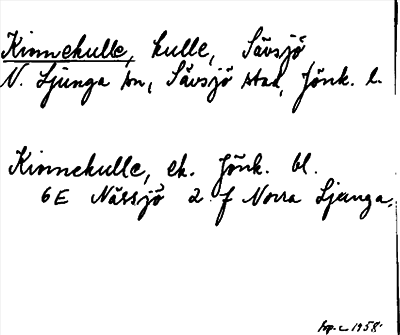 Kinnekulle, kulle, Sävsjö
N. Ljunga sn, Sävsjö stad, Jönk. l.
Kinnekulle, ek. Jönk. bl.
6E Nässjö 2 f Norra Ljunga,
1958